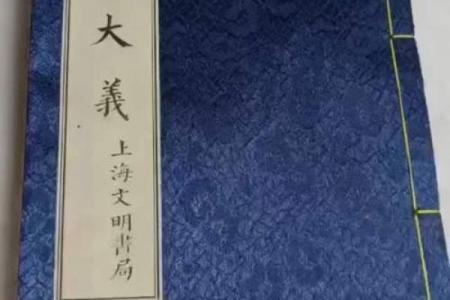 大義
上海文明書局